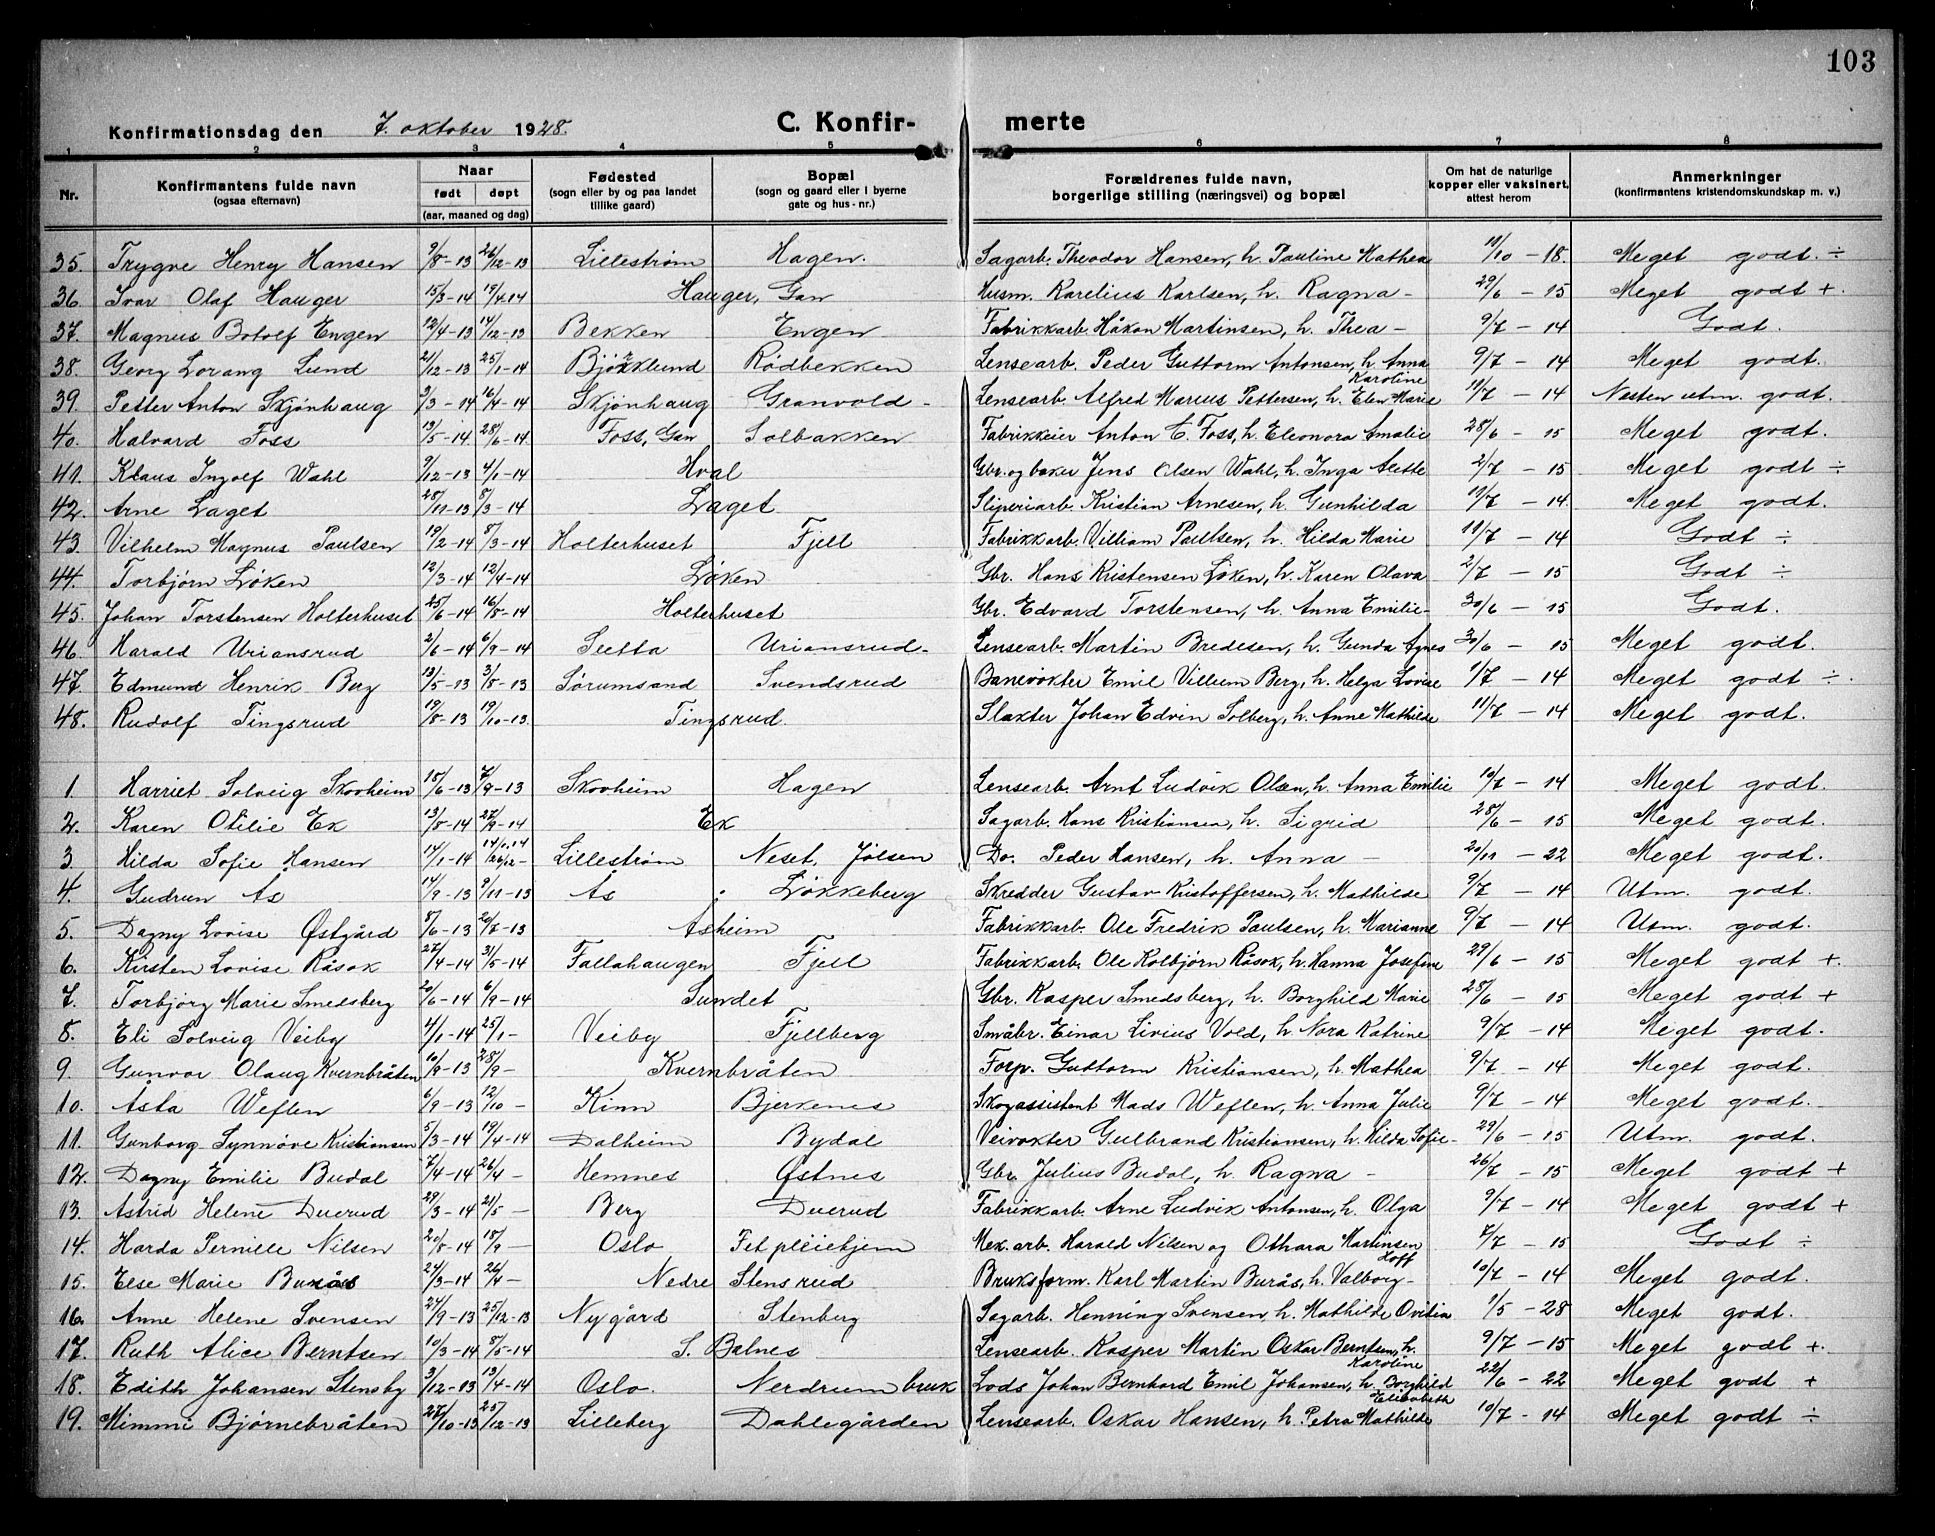 103
Konfirmationsdag den 7. oktober 1928. C. Konfir- merte
1 2 3 4 5 6 7 8
Nr. Konfirmantens fulde navn (ogsaa efternavn) Naar født døpt (aar, maaned og dag) Fødested (sogn eller by og paa landet tillike gaard) Bopæl (sogn og gaard eller i byerne gate og hus-nr.) Forældrenes fulde navn, borgerlige stilling (næringsvei) og bopæl Om hat de naturlige kopper eller vaksinert, attest herom Anmerkninger (konfirmantens kristendomskundskap m. v.)
35. Trygve Henry Hansen 9/8-13 26/12-13 Lillestrøm Hagen. Sagarb. Theodor Hansen, h. Pauline Mathea 11/10 - 18. Meget godt. ÷
36. Ivar Olaf Hauger 15/3-14 19/4.14 Hauger, Gan Husm. Karelius Karlsen, h. Ragna - 29/6 - 15 Meget godt +.
37. Magnus Botolf Engen 12/4-13 14/12-13 Bekken Engen Fabrikkarb. Håkon Martinsen, h. Thea - 9/7 - 14 Godt.
38. Georg Lorang Lund 21/12-13 25/1-14 Bjørklund Rødbekken Lensearb. Peder Guttorm Antonsen, h. Anna Karoline 9/7 - 14 Meget godt.
39. Petter Anton Skjønhaug 2/3-14 16/4-14 Skjønhaug Granvold - Lensearb. Alfred Marius Pettersen, h. Elen Marie 11/7 - 14 Nesten utm. godt.
40. Halvard Foss 13/5-14 28/6-14 Foss, Gan Solbakken Fabrikkeier Anton E. Foss, h. Eleonora Amalie 28/6 - 15 Meget godt.
41. Klaus Ingolf Wahl 9/12-13 4/1-14 Hval Gbr. og baker Jens Olsen Wahl, h. Inga Alette 2/7 - 15 Meget godt ÷
42. Arne Laget 28/11-13 8/3-14 Laget Sliperiarb. Kristian Arnesen, h. Gunhilda 11/7 - 14. Meget godt.
43. Vilhelm Magnus Paulsen 19/2-14 8/3-14 Holterhuset Fjell Fabrikkarb. Villiam Paulsen, h. Hilda Marie 11/7 - 14 Godt ÷
44. Torbjørn Løken 12/3-14 12/4-14 Løken Gbr. Hans Kristensen Løken, h. Karen Olava 2/7 - 15 Godt ÷
45. Johan Torstensen Holterhuset 25/6-14 16/8-14 Holterhuset Gbr. Edvard Torstensen, h. Anna Emilie - 30/6 - 15 Godt.
46. Harald Uriansrud 2/6-14 6/9-14 Setta Uriansrud - Lensearb. Martin Bredesen, h. Gunda Agnes 30/6 - 15 Meget godt.
47. Edmund Henrik Berg 13/5-13 3/8-13 Sørumsand Svendsrud Banevokter Emil Villum Berg, h. Helga Lovise 1/7 - 14 Meget godt ÷.
48. Rudolf Tingsrud 19/8-13 19/10-13. Tingsrud. Slakter Johan Edvin Solberg, h. Anne Mathilde 11/7 - 14 Meget godt.
1 Harriet Solveig Skovheim 15/6-13 7/9-13 Skovheim Hagen Lensearb. Arnt Ludvik Olsen, h. Anna Emilie 10/7 - 14 Meget godt.
2. Karen Otilie Ek 13/8-14 27/9-14 Ek Sagarb. Hans Kristiansen, h. Sigrid 28/6 - 15 Meget godt.
3 Hilda Sofie Hansen 14/1-14 26/12- Lillestrøm Neset, Jølsen Do. Peder Hansen, h. Anna - 20/11 - 22 Meget godt.
4. Gudrun Ås 14/9-13 9/11-13 Ås Løkkeberg Skredder Gustav Kristoffersen, h. Mathilde 9/7 - 14 Utm. godt.
5. Dagny Lovise Østgård 8/6-13 20/7-13 Åsheim Fabrikkarb. Ole Fredrik Paulsen, h. Marianne 9/7 - 14 Utm. godt.
6. Kirsten Lovise Råsok 27/4-14 31/5-14 Fallahaugen Fjell Fabrikkarb. Ole Kolbjørn Råsok, h. Hanna Josefine 29/6 - 15 Meget godt +.
7. Torbjørg Marie Smedsberg 20/6-14 6/9-14 Sundet Gbr. Kasper Smedsberg, h. Borghild Marie 25/6 - 15 Meget godt +
8. Eli Solveig Veiby 4/1-14 25/1- Veiby Fjellberg Småbr. Einar Livius Vold, h. Nora Katrine 9/7 - 14 Meget godt.
9. Gunvor Olaug Kvernbråten 10/9-13 28/9- Kvernbråten Forp. Guttorm Kristiansen, h. Mathea 9/7 - 14 Meget godt.
10. Åsta Weflen 6/9-13 12/10- Kinn Bjerkenes Skogassistent Mads Weflen, h. Anna Julie 9/7 - 14 Meget godt.
11. Gunborg Synnøve Kristiansen 5/3-14 19/4-14 Dalheim Bydal Veivokter Gulbrand Kristiansen, h. Hilda Sofie - 29/6 - 15 Utm. godt.
12. Dagny Emilie Budal 7/4-14 26/4- Hemnes Østnes Gbr. Julius Budal, h. Ragna - 26/7 - 15 Meget godt +
13. Astrid Helene Duerud 29/3-14 21/5- Berg Duerud Fabrikkarb. Arne Ludvik Antonsen, h. Olga 9/7 - 14 Meget godt +
14. Harda Pernille Nilsen 20/8-14 18/9- Oslo Fet pleiehjem Mek. arb. Harald Nilsen og Othara Martinsen Hoff 2/7 - 15 Godt ÷
15. Else Marie Burås 24/3-14 26/4- Nedre Stensrud Bruksform. Karl Martin Burås, h. Valborg - 10/7 - 14 Meget godt.
16. Anne Helene Svensen 24/9-13 25/12-13 Nygård Stenberg Sagarb. Henning Svensen, h. Mathilde Ovitia 1/5 - 28 Meget godt.
17. Ruth Alice Berntsen 10/3-14 8/5-14 S. Balnes Lensearb. Kasper Martin Oskar Berntsen, h. Karoline 9/7 - 15 Meget godt +.
18. Edith Johansen Stensby 3/12-13 13/4-14 Oslo. Nerdrum bruk Lods Johan Bernhard Emil Johansen, h. Borghild Elisabeth 22/6 - 22 Meget godt +
19. Mimmi Bjørnebråten 27/10-13 25/12-13 Lilleberg Dahlegården Lensearb. Oskar Hansen, h. Petra Mathilde 10/7 - 14 Meget godt ÷